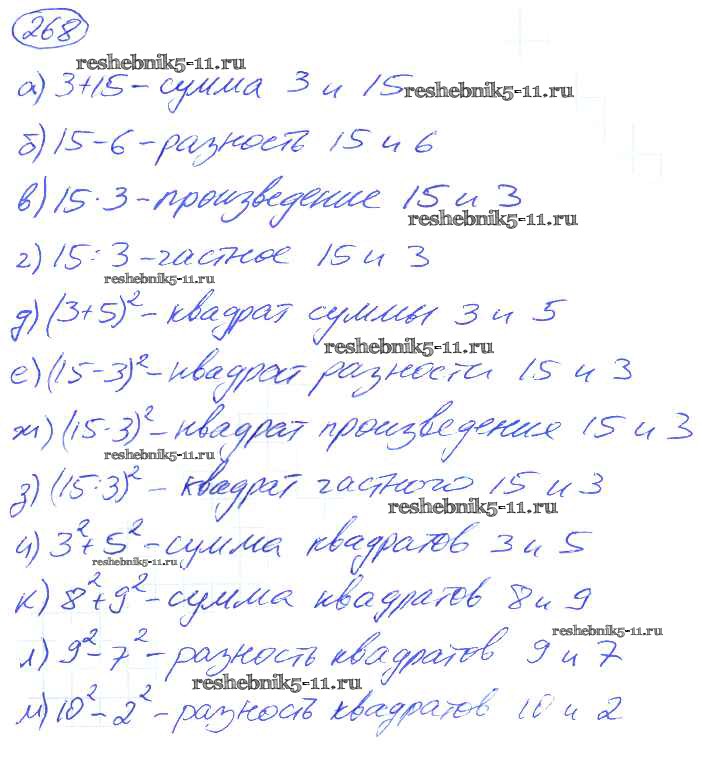 268
reshebnik5-11.ru
а) 3+15 – сумма 3 и 15 reshebnik5-11.ru
б) 15-6 – разность 15 и 6
в) 15·3 – произведение 15 и 3
reshebnik5-11.ru
г) 15:3 – частное 15 и 3
reshebnik5-11.ru
д) (3+5)² – квадрат суммы 3 и 5
reshebnik5-11.ru
е) (15-3)² – квадрат разности 15 и 3
ж) (15·3)² – квадрат произведения 15 и 3
reshebnik5-11.ru
з) (15:3)² – квадрат частного 15 и 3
reshebnik5-11.ru
и) 3²+5² – сумма квадратов 3 и 5
reshebnik5-11.ru
к) 8²+9² – сумма квадратов 8 и 9
reshebnik5-11.ru
л) 9²-7² – разность квадратов 9 и 7
reshebnik5-11.ru
м) 10²-2² – разность квадратов 10 и 2